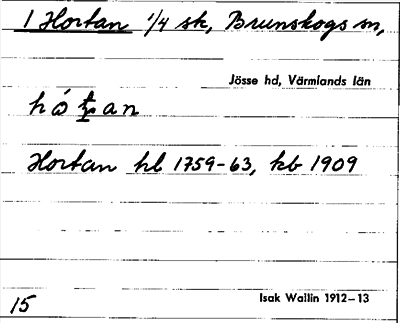 1 Hortan 1/4 sk, Brunskogs sn,
Jösse hd, Värmlands län
Hortan hl 1759-63, kb 1909
15
Isak Wallin 1912-13